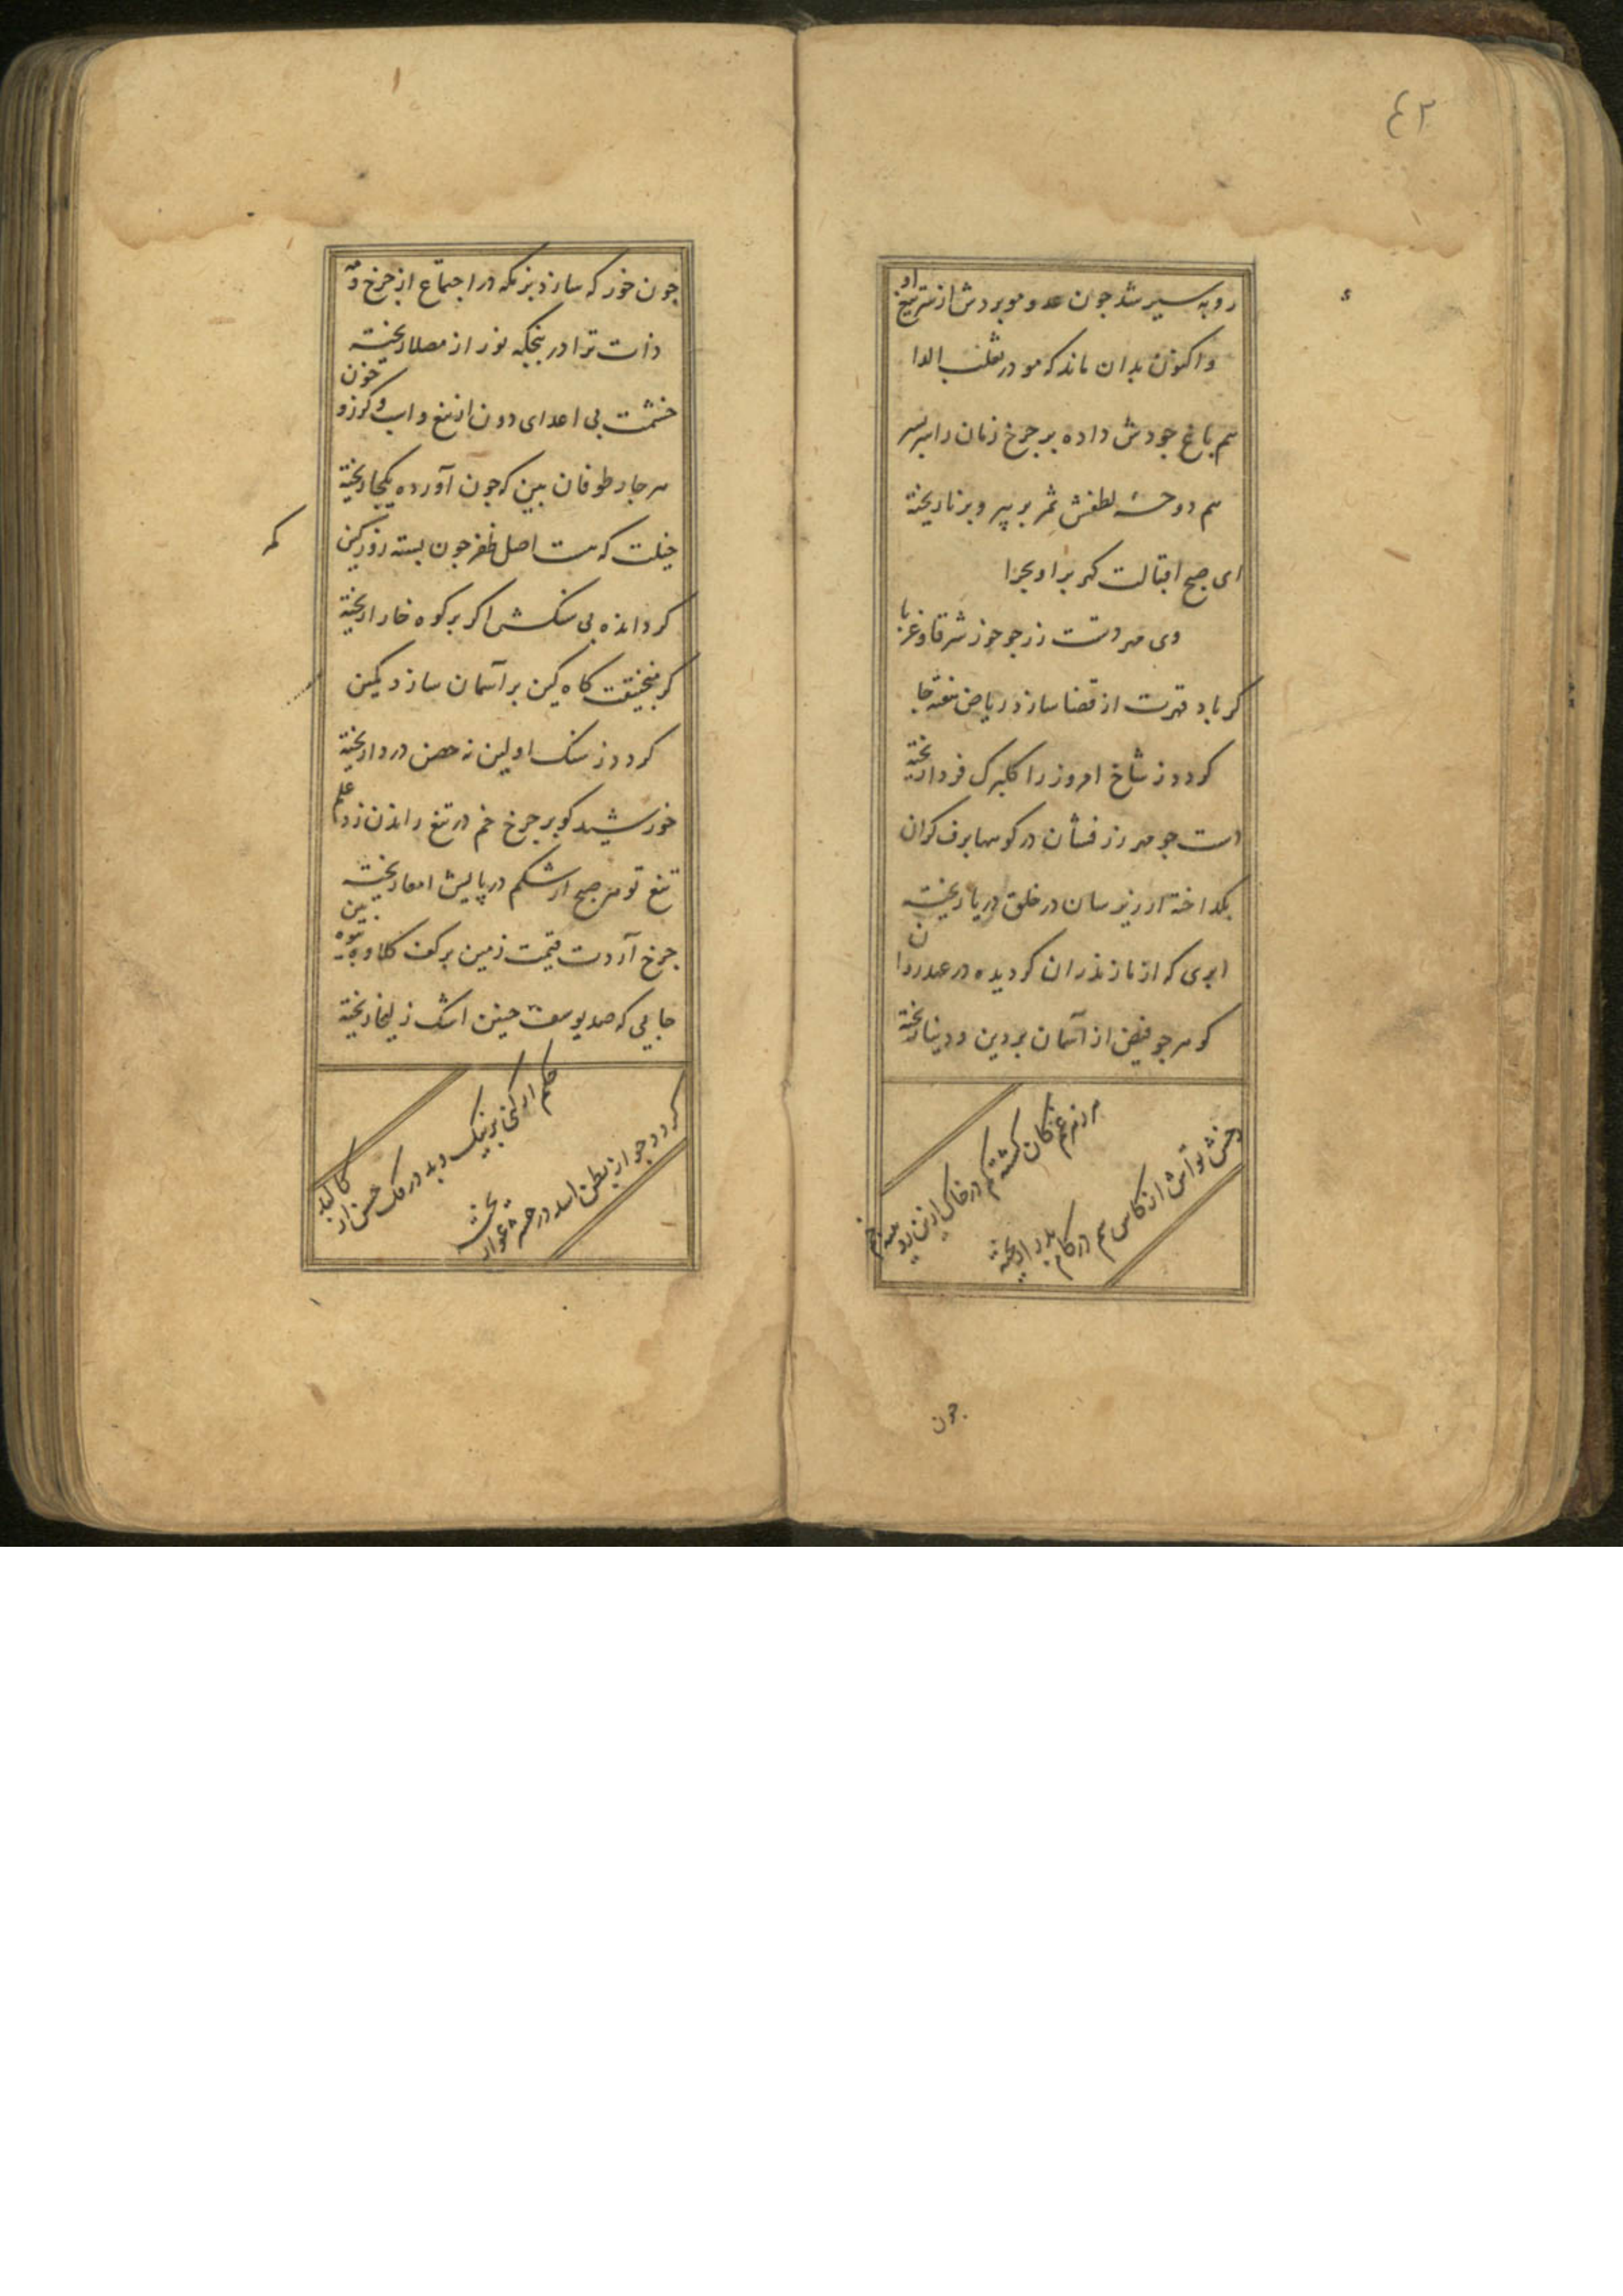 ٤٢
روبه سیر شد جون عدو مو بردش از سر تیغ او
واکنون بدان ماند که مو در ثعلب الدا
هم باغ جودش داده بر جرخ زمان را سربسر
هم دوحهٔ لطفش ثمر بر پیر و برنا ریخته
ای صبح اقبالت کهر بر او بحرا
وی مهر دستت زر جو خور شرقا و غربا
کر باد قهرت از قضا سازد ریاض سفته جا
کردد ز شاخ امروز را کلبرک فردا ریخته
دست جو مهر زر فشان در کوهها برف کران
بکداخته ارزیز سان در خلق دریا ریخته
ابری که از مازندران کردیده در عهد روان
کوهر جو فیض از آسمان بر دین و دنیا ریخته
در خاک ازین رو
خشش تو آتش از کاس سم در کام ریخته
جون
جون خور که سازد بزمکه در اجتماع از جرخ و مه
ذات ترا در پنجکه نور از مصلا ریخته
خشمت پی اعدای دون از تیغ و اب و کرز و خون
هر جار طوفان بین که جون آورده یکجا ریخته
خیلت که هست اصل ظفر جون بسته روز کین کمر
کرد انده بی سنکش اکر بر کوه خارا ریخته
کر منجنیقت کاه کین بر آسمان سازد کمین
کردد ز سنک اولین نه حصن در وا ریخته
خورشید کو بر جرخ خم در تیغ راندن زد علم
تیغ تو هر صبح از شکم در پایش امعا ریخته
جرخ آردت قیمت زمین بر کف کلاوه تیره بین
جایی که صد یوسف جنین اشک زلیخا ریخته
حکم ار کنی بر نیک و بد در ملک حسن از کالبد
کردد جو از بطن اسد در حشر اعوا ریخته